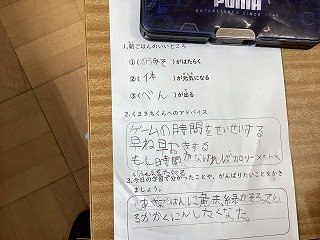 PUMA
ESTABLISHED SINCE
1.朝ごはんのいいところ
①( )がはたらく
②(体)が元気になる
③(べん)が出る
2.くまきちくんへのアドバイス
ゲームの時間をせいげんする
早ね早おきする
もし時間がなければカロリーメイトで
3.今日の学習で分かったことや、がんばりたいことをか
きましょう。
朝ごはんに黄赤緑がそろってい
るかかくにんしたくなった。